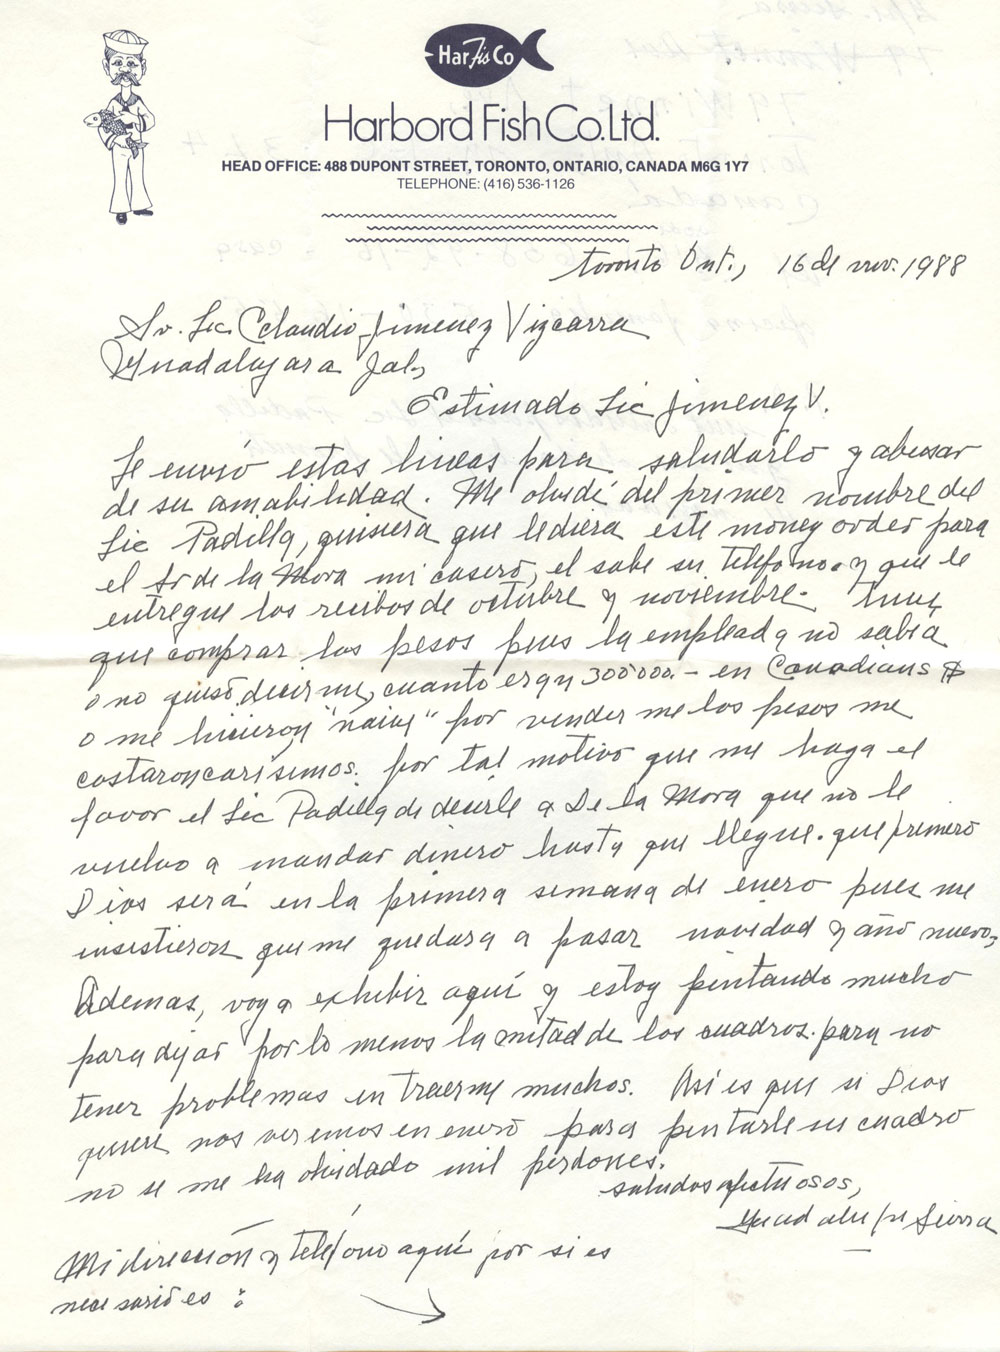 HarFisCo
Harbord Fish Co. Ltd.
HEAD OFFICE: 488 DUPONT STREET, TORONTO, ONTARIO, CANADA M6G 1Y7
TELEPHONE: (416) 536-1126
Toronto Ont., 16 de nov. 1988
Sr. Lic. Claudio Jimenez Vizcarra
Guadalajara Jal.,
Estimado Lic Jimenez V.
Le envió estas lineas para saludarlo y abusar
de su amabilidad. Me olvidé del primer nombre del
Lic Padilla, quisiera que le diera este money order para
el Sr de la Mora mi casero, el sabe su telefono. y que le
entregue los recibos de octubre y noviembre. Tuve
que comprar los pesos pues la empleada no sabia
o no quiso decirme, cuanto eran 300'000.- en Canadians $
o me hicieron "naive" por vender me los pesos me
costaron carísimos. por tal motivo que me haga el
favor el Lic Padilla de decirle a De la Mora que no le
vuelvo a mandar dinero hasta que llegue. que primero
Dios será en la primera semana de enero pues me
insistieron que me quedara a pasar navidad y año nuevo,
Ademas, voy a exhibir aquí y estoy pintando mucho
para dejar por lo menos la mitad de los cuadros. para no
tener problemas en traerme muchos. Así es que si Dios
quiere nos veremos en enero para pintarle su cuadro
no se me ha olvidado mil perdones.
saludos afectuosos,
Guadalupe Sierra
Mi dirección y teléfono aquí por si es
necesario es :